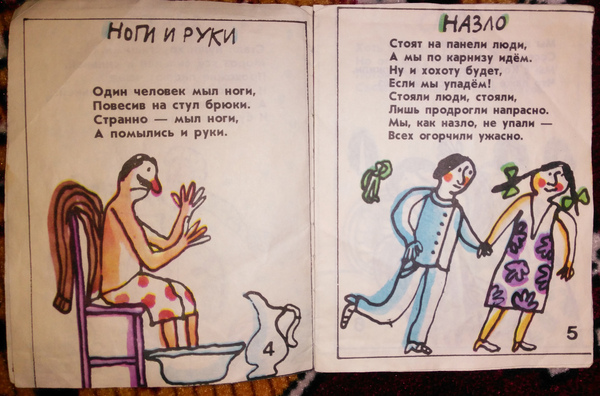 НОГИ И РУКИ
Один человек мыл ноги,
Повесив на стул брюки.
Странно — мыл ноги,
А помылись и руки.
4
НАЗЛО
Стоят на панели люди,
А мы по карнизу идём.
Ну и хохоту будет,
Если мы упадём!
Стояли люди, стояли,
Лишь продрогли напрасно.
Мы, как назло, не упали —
Всех огорчили ужасно.
5